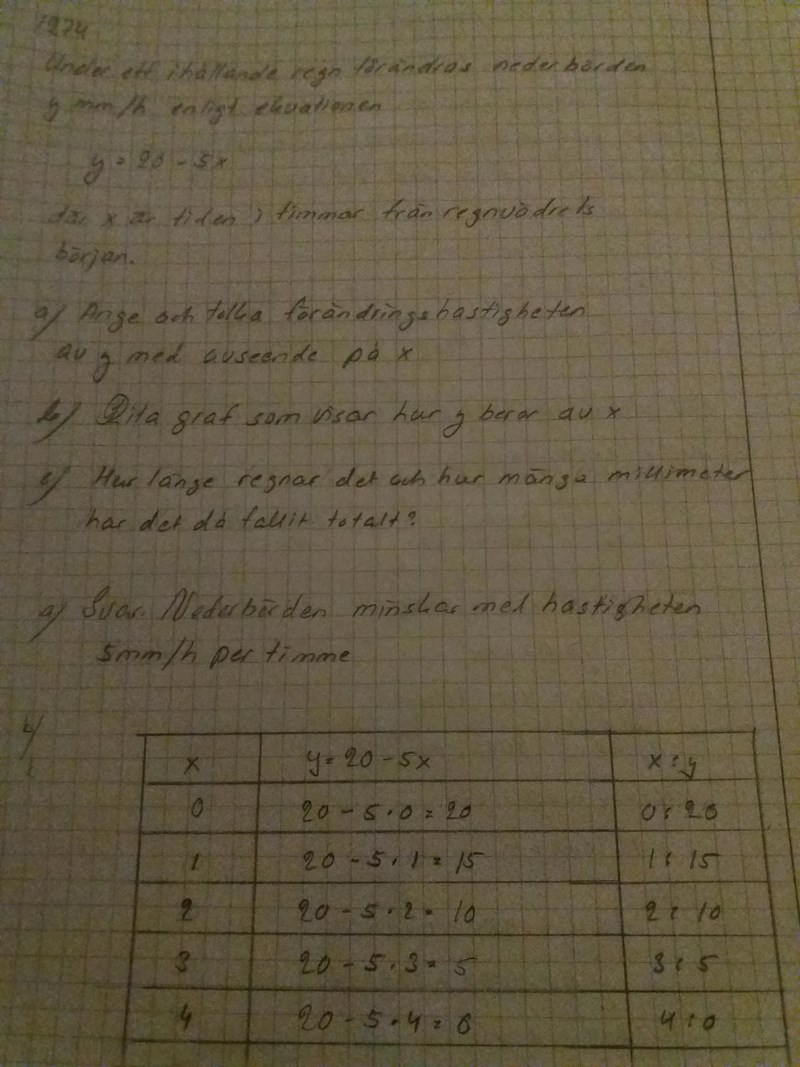 1274
Under ett ihållande regn förändras nederbörden
y mm/h enligt ekvationen
y = 20 - 5x
där x är tiden i timmar från regnvädrets
början.
a) Ange och tolka förändringshastigheten
av y med avseende på x
b) Rita graf som visar hur y beror av x
c) Hur länge regnar det och hur många millimeter
har det då fallit totalt?
a) Svar. Nederbörden minskar med hastigheten
5mm/h per timme
b)
x y = 20 - 5x x ; y
0 20 - 5 · 0 = 20 0 ; 20
1 20 - 5 · 1 = 15 1 ; 15
2 20 - 5 · 2 = 10 2 ; 10
3 20 - 5 · 3 = 5 3 ; 5
4 20 - 5 · 4 = 0 4 ; 0